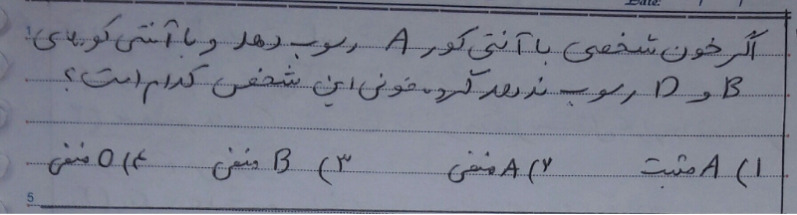 اگر خون شخصی با آنتی کور A رسوب دهد و با آنتی کورهای
B و D رسوب ندهد گروه خونی این شخص کدام است؟
۱) A مثبت ۲) A منفی ۳) B منفی ۴) O منفی
5